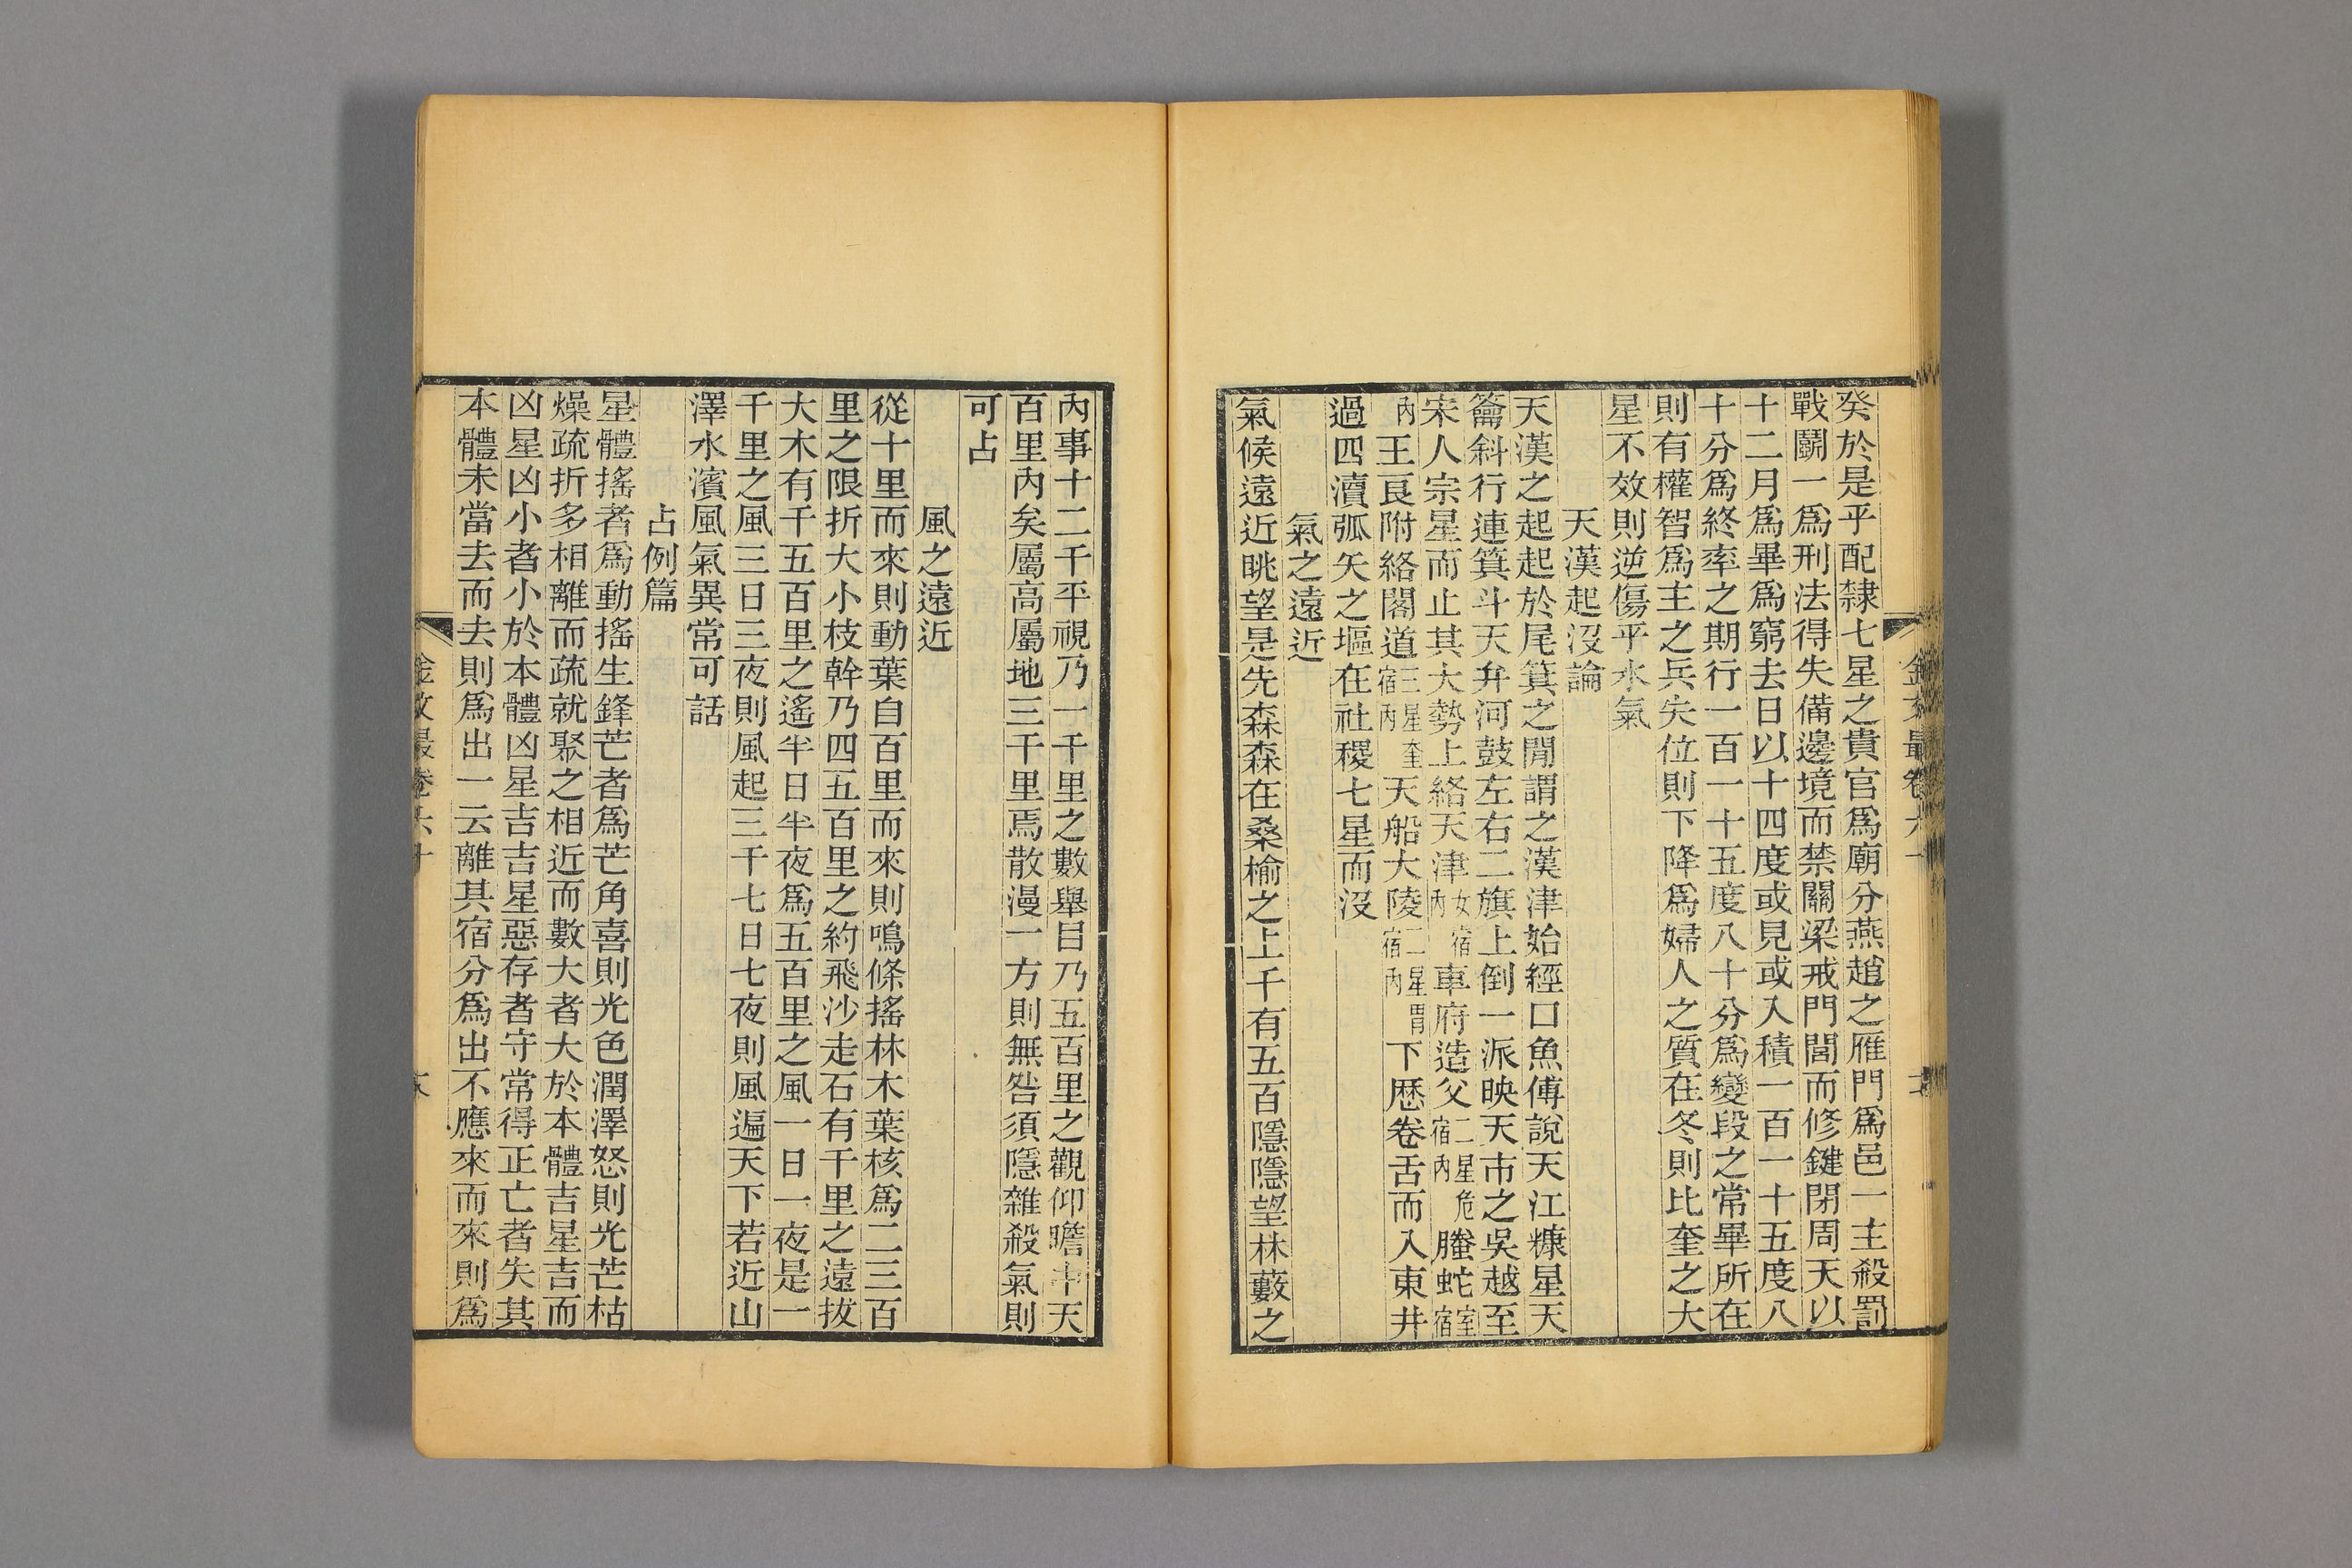 癸於是乎配隸七星之貴官爲廟分燕趙之雁門爲邑一主殺罰
戰鬭一爲刑法得失備邊境而禁關梁戒門閭而修鍵閉周天以
十二月爲畢爲窮去日以十四度或見或入積一百一十五度八
十分爲終率之期行一百一十五度八十分爲變段之常畢所在
則有權智爲主之兵失位則下降爲婦人之質在冬則比奎之大
星不效則逆傷平水氣
天漢起沒論
天漢之起起於尾箕之閒謂之漢津始經口魚傅說天江糠星天
籥斜行連箕斗天弁河鼓左右二旗上倒一派映天市之吳越至
宋人宗星而止其大勢上絡天津女宿內車府造父二星危宿內螣蛇室宿
內王良附絡閣道三星奎宿內天船大陵二星胃宿內下歷卷舌而入東井
過四瀆弧矢之堛在社稷七星而沒
氣之遠近
氣候遠近眺望是先森森在桑榆之上千有五百隱隱望林藪之
內事十二千平視乃一千里之數舉目乃五百里之觀仰瞻中天
百里內矣屬高屬地三千里焉散漫一方則無咎須隱雜殺氣則
可占
風之遠近
從十里而來則動葉自百里而來則鳴條搖林木葉核爲二三百
里之限折大小枝幹乃四五百里之約飛沙走石有千里之遠拔
大木有千五百里之遙半日半夜爲五百里之風一日一夜是一
千里之風三日三夜則風起三千七日七夜則風遍天下若近山
澤水濱風氣異常可話
占例篇
星體搖者爲動搖生鋒芒者爲芒角喜則光色潤澤怒則光芒枯
燥疏折多相離而疏就聚之相近而數大者大於本體吉星吉而
凶星凶小者小於本體凶星吉吉星惡存者守常得正亡者失其
本體未當去而去則爲出一云離其宿分爲出不應來而來則爲